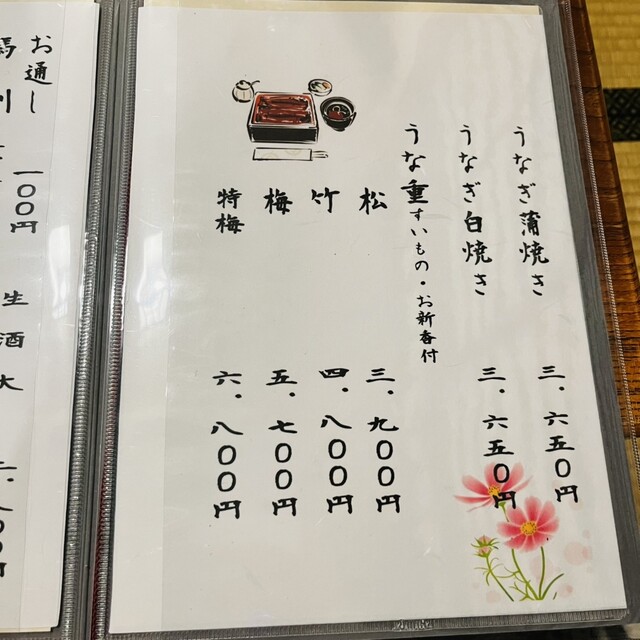 うなぎ蒲焼き 三、六五〇円
うなぎ白焼き 三、六五〇円
うな重 すいもの・お新香付
松 三、九〇〇円
竹 四、八〇〇円
梅 五、七〇〇円
特梅 六、八〇〇円
お通し 一〇〇円
生酒大